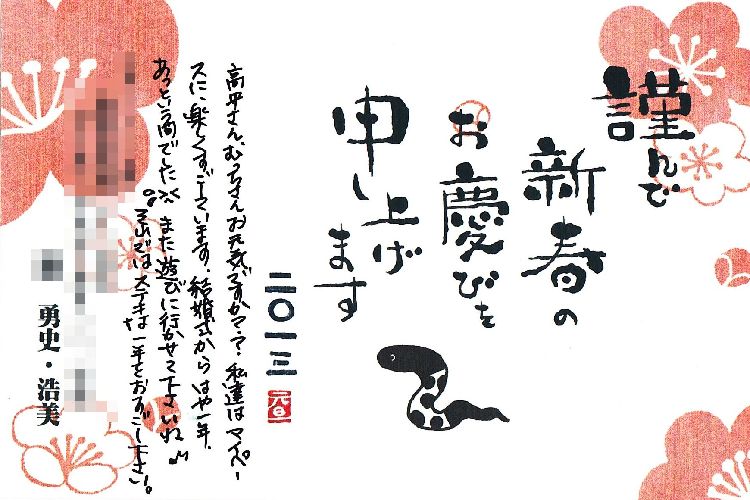 謹んで
新春の
お慶びを
申し上げ
ます
二〇一三
元旦
高平さんむっちゃんお元気ですか??私達はマイペー
スに、楽しくすごしています。結婚式からはや一年、
あっという間でした また遊びに行かせて下さいね♪
それではステキな一年をおすごし下さい。
勇史・浩美